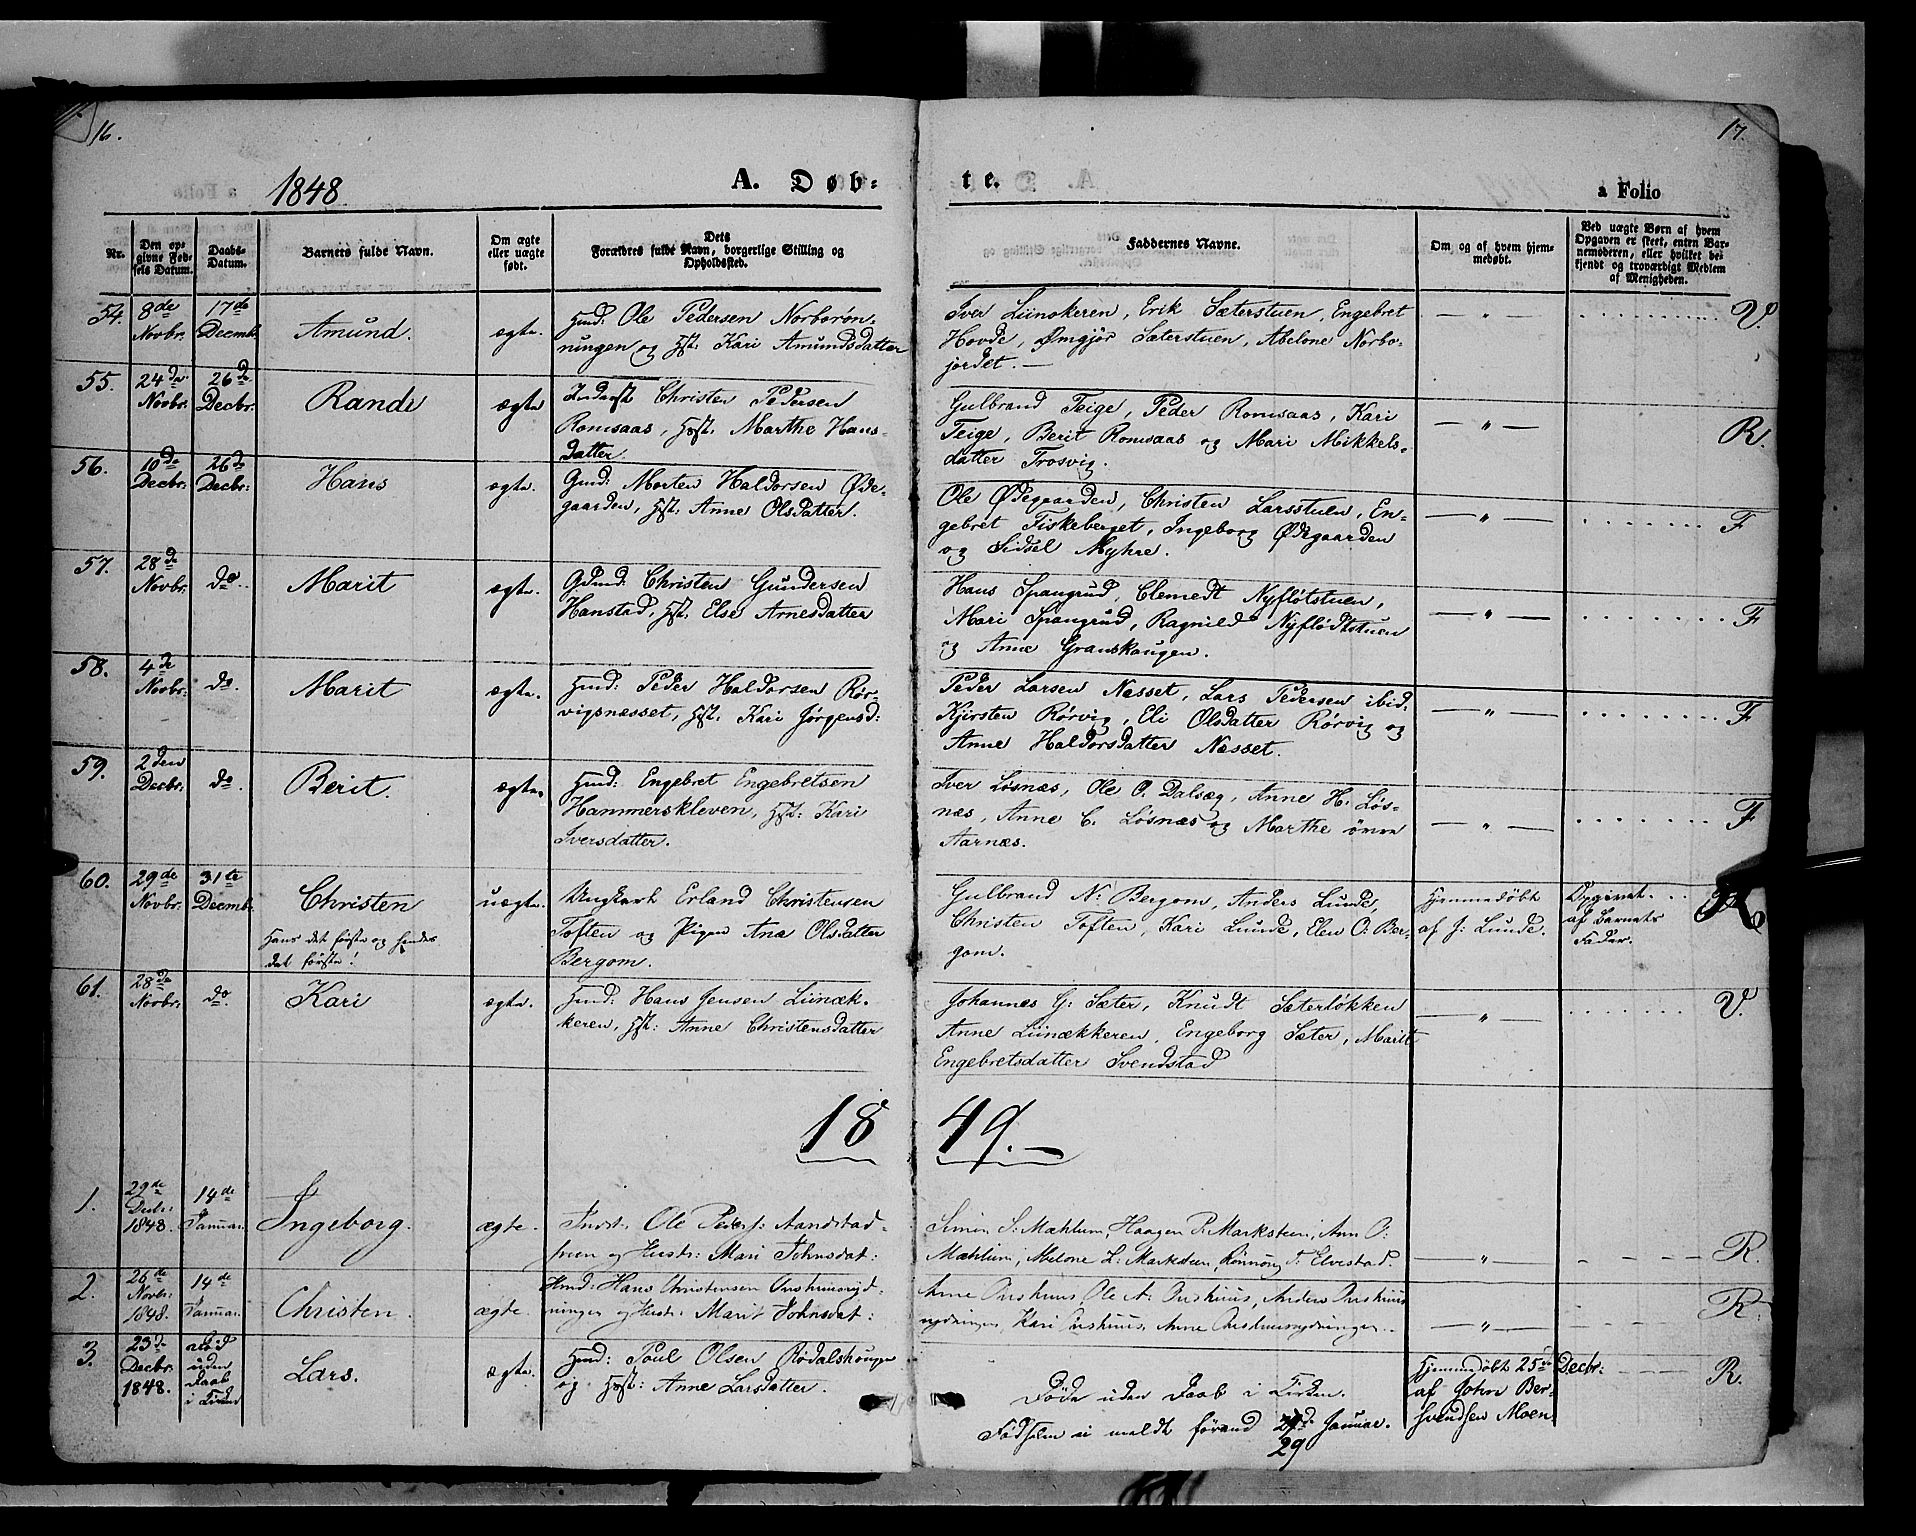 16.
17.
1848
A. Døb-
te.
a Folio
Nr.
Den op-
givne Fød-
sels Datum.
Daabs-
Datum.
Barnets fulde Navn.
Om ægte
eller uægte
født.
Dets
Forældres fulde Navn, borgerlige Stilling og
Opholdsted.
Faddernes Navne.
Om og af hvem hjem-
medøbt.
Ved uægte Børn af hvem
Opgaven er skeet, enten Bar-
nemoderen, eller hvilket be-
kjendt og troværdigt Medlem
af Menigheden.
54. 8de Novbr. 17de Decembr. Amund. ægte.
Hmd: Ole Pedersen Norbørøn-
ningen og Hst: Kari Amundsdatter
Iver Liinokeren, Erik Sæterstuen, Engebret
Hovde, Ømgjør Sæterstuen, Abelone Norbo-
jordet. —
— " — V.
55. 24de Novbr. 26de Decbr. Rande ægte
Inderst Christen Pedersen
Romsaas, Hst. Marthe Hans-
datter.
Gulbrand Teige, Peder Romsaas, Kari
Teige, Berit Romsaas og Mari Mikkels-
datter Trosvig.
— " — R.
56. 10de Decbr. 26de Decbr: Hans ægte.
Gmd: Morten Haldorsen Øde-
gaarden, Hst. Anne Olsdatter.
Ole Ødegaarden, Christen Larsstuen, En-
gebret Fiskeberget, Ingeborg Ødegaarden
og Sidsel Myhre.
— " — F
57. 28de Novbr. do. Marit ægte.
Gdmd: Christen Gundersen
Hanstad, Hst. Else Arnesdatter
Hans Spangrud, Clemedt Nyfløtstuen,
Mari Spangrud, Ragnild Nyflødtstuen
og Anne Granskaugen.
— " — F
58. 4de Novbr: do. Marit ægte.
Hmd: Peder Haldorsen Rør-
vigsnæsset, Hst. Kari Jørgensd:
Peder Larsen Næsset, Lars Pedersen ibid.
Kjersten Rørvig, Eli Olsdatter Rørvig og
Anne Haldorsdatter Næsset.
— " — F
59. 2den Decbr: do. Berit. ægte.
Hmd: Engebret Engebretsen
Hammerskleven, Hst: Kari
Iversdatter.
Iver Løsnæs, Ole O. Dalsæg, Anne H. Løs-
næs, Anne C. Løsnæs og Marthe øvre
Aarnæs.
— " — F
60. 29de Novbr. 31te Decembr. Christen uægte.
Hans det første og hendes
det første!
Ungkarl Erland Christensen
Toften og Pigen Ane Olsdatter
Bergom.
Gulbrand N: Bergom, Anders Lunde,
Christen Toften, Kari Lunde, Elen O: Ber-
gom.
Hjemmedøbt
af J: Lunde.
Opgivet
af Barnets
Fader.
R
61. 28de Novbr: do. Kari ægte.
Hmd: Hans Jensen Liinæk-
keren, Hst: Anne Christensdatter
Johannes G: Sæter, Knudt Sæterløkken
Anne Liinækkeren, Engeborg Sæter, Marit
Engebretsdatter Svendstad
— " — V.
18 49. —
1. 29de Decbr: 1848. 14de Januar. Ingeborg. ægte.
Indst. Ole Peders: Aandstad-
hven og Hustr: Mari Johnsdat:
Simen S: Mæhlum, Haagen P. Marksteen, Ann O:
Mæhlum, Abelone L: Marksteen, Rønnoug T. Elvestad.
— " — R.
2. 26de Novbr: 1848. 14de Januar. Christen. ægte.
Hmd: Hans Christensen Onshuusryd-
ningen og Hustr: Marit Johnsdat:
Arne Onshuus, Ole A: Onshuus, Anders Onshuus
rydningen, Kari Onshuus, Anne Onshuusrydningen.
— " — R.
3. 23de Decbr: 1848. død uden Daab i Kirken Lars. ægte.
Hmd: Poul Olsen Rødalshougen
og Hst: Anne Larsdatter.
Døde uden Daab i Kirken.
Fødselen ei meldt førend Januar.
29
Hjemmedøbt 25de Decbr:
af John Ber-
svendsen Moen
R.